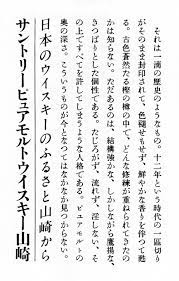 それは一滴の歴史のようなもの。十二年という時代の一区切り
がそのまま封印されて、色褪せもせず、鮮やかな香りを伴って甦
る。古色蒼然たる樫の樽の中で、どんな修練が重ねられてきたの
かは知らない。ただあるのは、結構強かな、しかしながら鷹揚な、
きっぱりとした個性である。たじろがず、流れず、淫しない、そ
の上ですべてを許してしまうような人格である。ピュアモルトの
奥の深さ。こういうものが今となってはなかなか見つからない。
日本のウイスキーのふるさと山崎から
サントリーピュアモルトウイスキー山崎